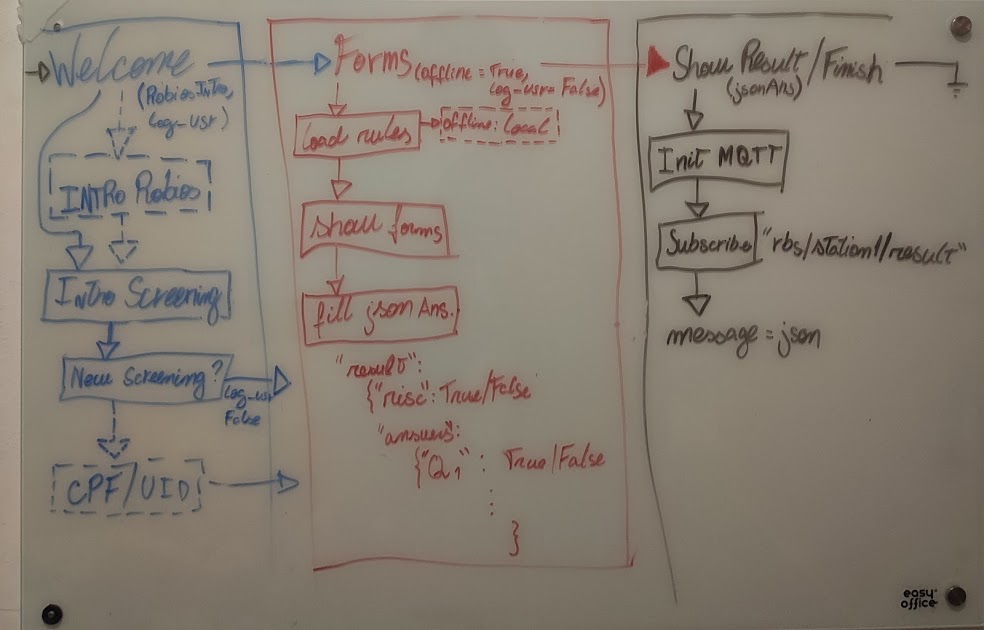 Welcome
(Robios Intro,
log-usr)
INTRO Robios
Intro Screening
New Screening?
log-usr
False
CPF/UID
Forms (offline = True,
log-usr = False)
load rules
offline: local
show forms
fill json Ans.
"result":
{"risc": True/False
"answers":
{"Q1" : True/False
:
}
Show Result/Finish
(jsonAns)
Init MQTT
Subscribe "rbs/station1/result"
message = json
easy
office